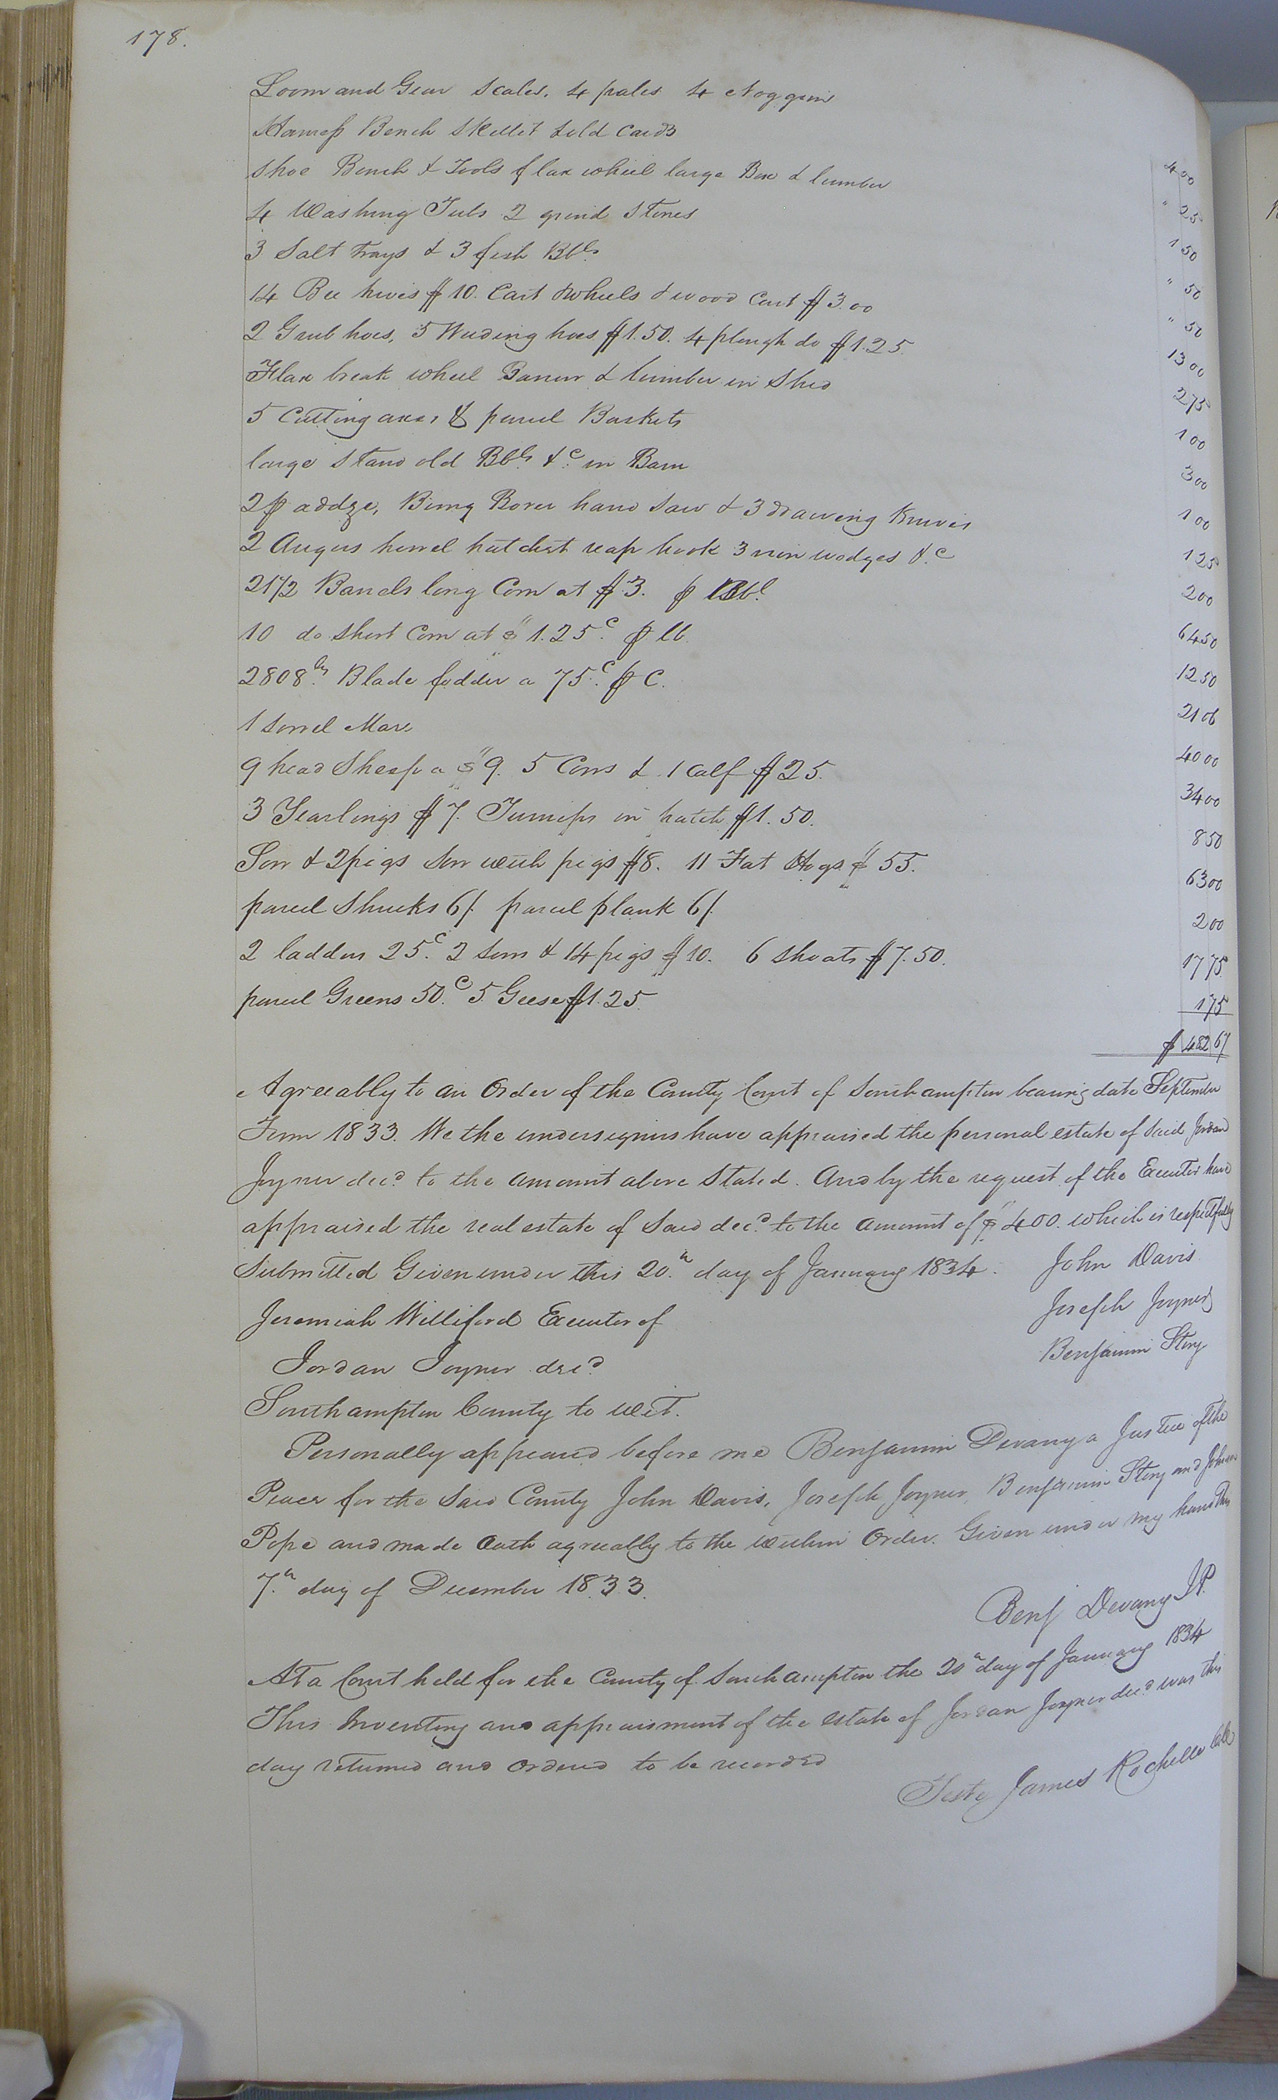 178.
Loom and Gear Scales. 4 pales 4 Noggins 4 00
Harness Bench Skillet & old Cards " 25
Shoe Bench & Tools flax wheel large Box & lumber 1 50
4 Washing Tubs 2 grind Stones " 50
3 Salt trays & 3 fish Bbls " 50
14 Bee hives $10. Cart Wheels & wood Cart $3.00 13 00
2 Grub hoes, 5 Weeding hoes $1.50. 4 plough do $1.25 2 75
Flax break wheel & lumber in Shed 1 00
5 Cutting axes & parcel Baskets 3 00
large Stand old Bbls &c in Barn 1 00
2 addze, Bung Borer hand Saw & 3 drawing Knives 1 25
2 Augers howel hatchet reap hook 3 iron wedges &c 2 00
21 1/2 Barrels long Corn at $3. p Bbl. 64 50
10 do Short Corn at $1.25c p lb. 12 50
2808 lbs Blade fodder a 75c p C. 21 06
1 Sorrel Mare 40 00
9 head Sheep a $9. 5 Cows & 1 Calf $25. 34 00
3 Yearlings $7. Turnips in patch $1.50. 8 50
Sow & 2 pigs Sow with pigs $8. 11 Fat Hogs $55. 63 00
parcel Shucks 6/. parcel plank 6/. 2 00
2 ladders 25c. 2 Sows & 14 pigs $10. 6 Shoats $7.50. 17 75
parcel Greens 50c 5 Geese $1.25 1 75
$482 67
Agreeably to an Order of the County Court of Southampton bearing date September
Term 1833. We the undersigners have appraised the personal estate of Said Jordan
Joyner decd. to the amount above Stated. And by the request of the Executor have
appraised the real estate of Said decd. to the amount of $400. which is respectfully
Submitted Given under this 20th day of January 1834. John Davis
Jeremiah Williford Executor of Joseph Joyner
Jordan Joyner decd Benjamin Story
Southampton County to wit.
Personally appeared before me Benjamin Devany a Justice of the
Peace for the Said County John Davis, Joseph Joyner, Benjamin Story and
Pope and made Oath agreeably to the within Order. Given under my hand this
7th day of December 1833.
Benj Devany JP.
At a Court held for the County of Southampton the 20th day of January 1834
This Inventory and appraisment of the estate of Jordan Joyner decd was this
day returned and Ordered to be recorded
Teste James Rochelle